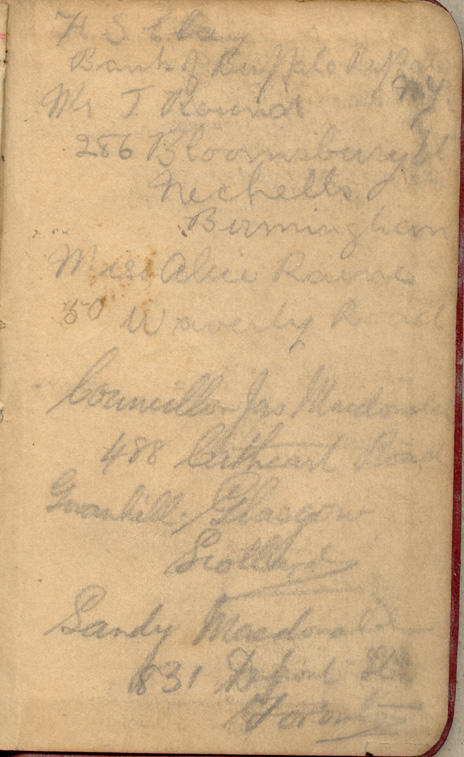 H S Ebay
Bank of Buffalo Buffalo
N.Y.
Mr T Round
286 Bloomsbury St
Nechells
Birmingham
Miss Alice Raine
50 Waverly Road
Councillor Jas Macdonald
488 Cathcart Road
Govanhill Glasgow
Scotland
Sandy Macdonald
831 Dupont St
Toronto